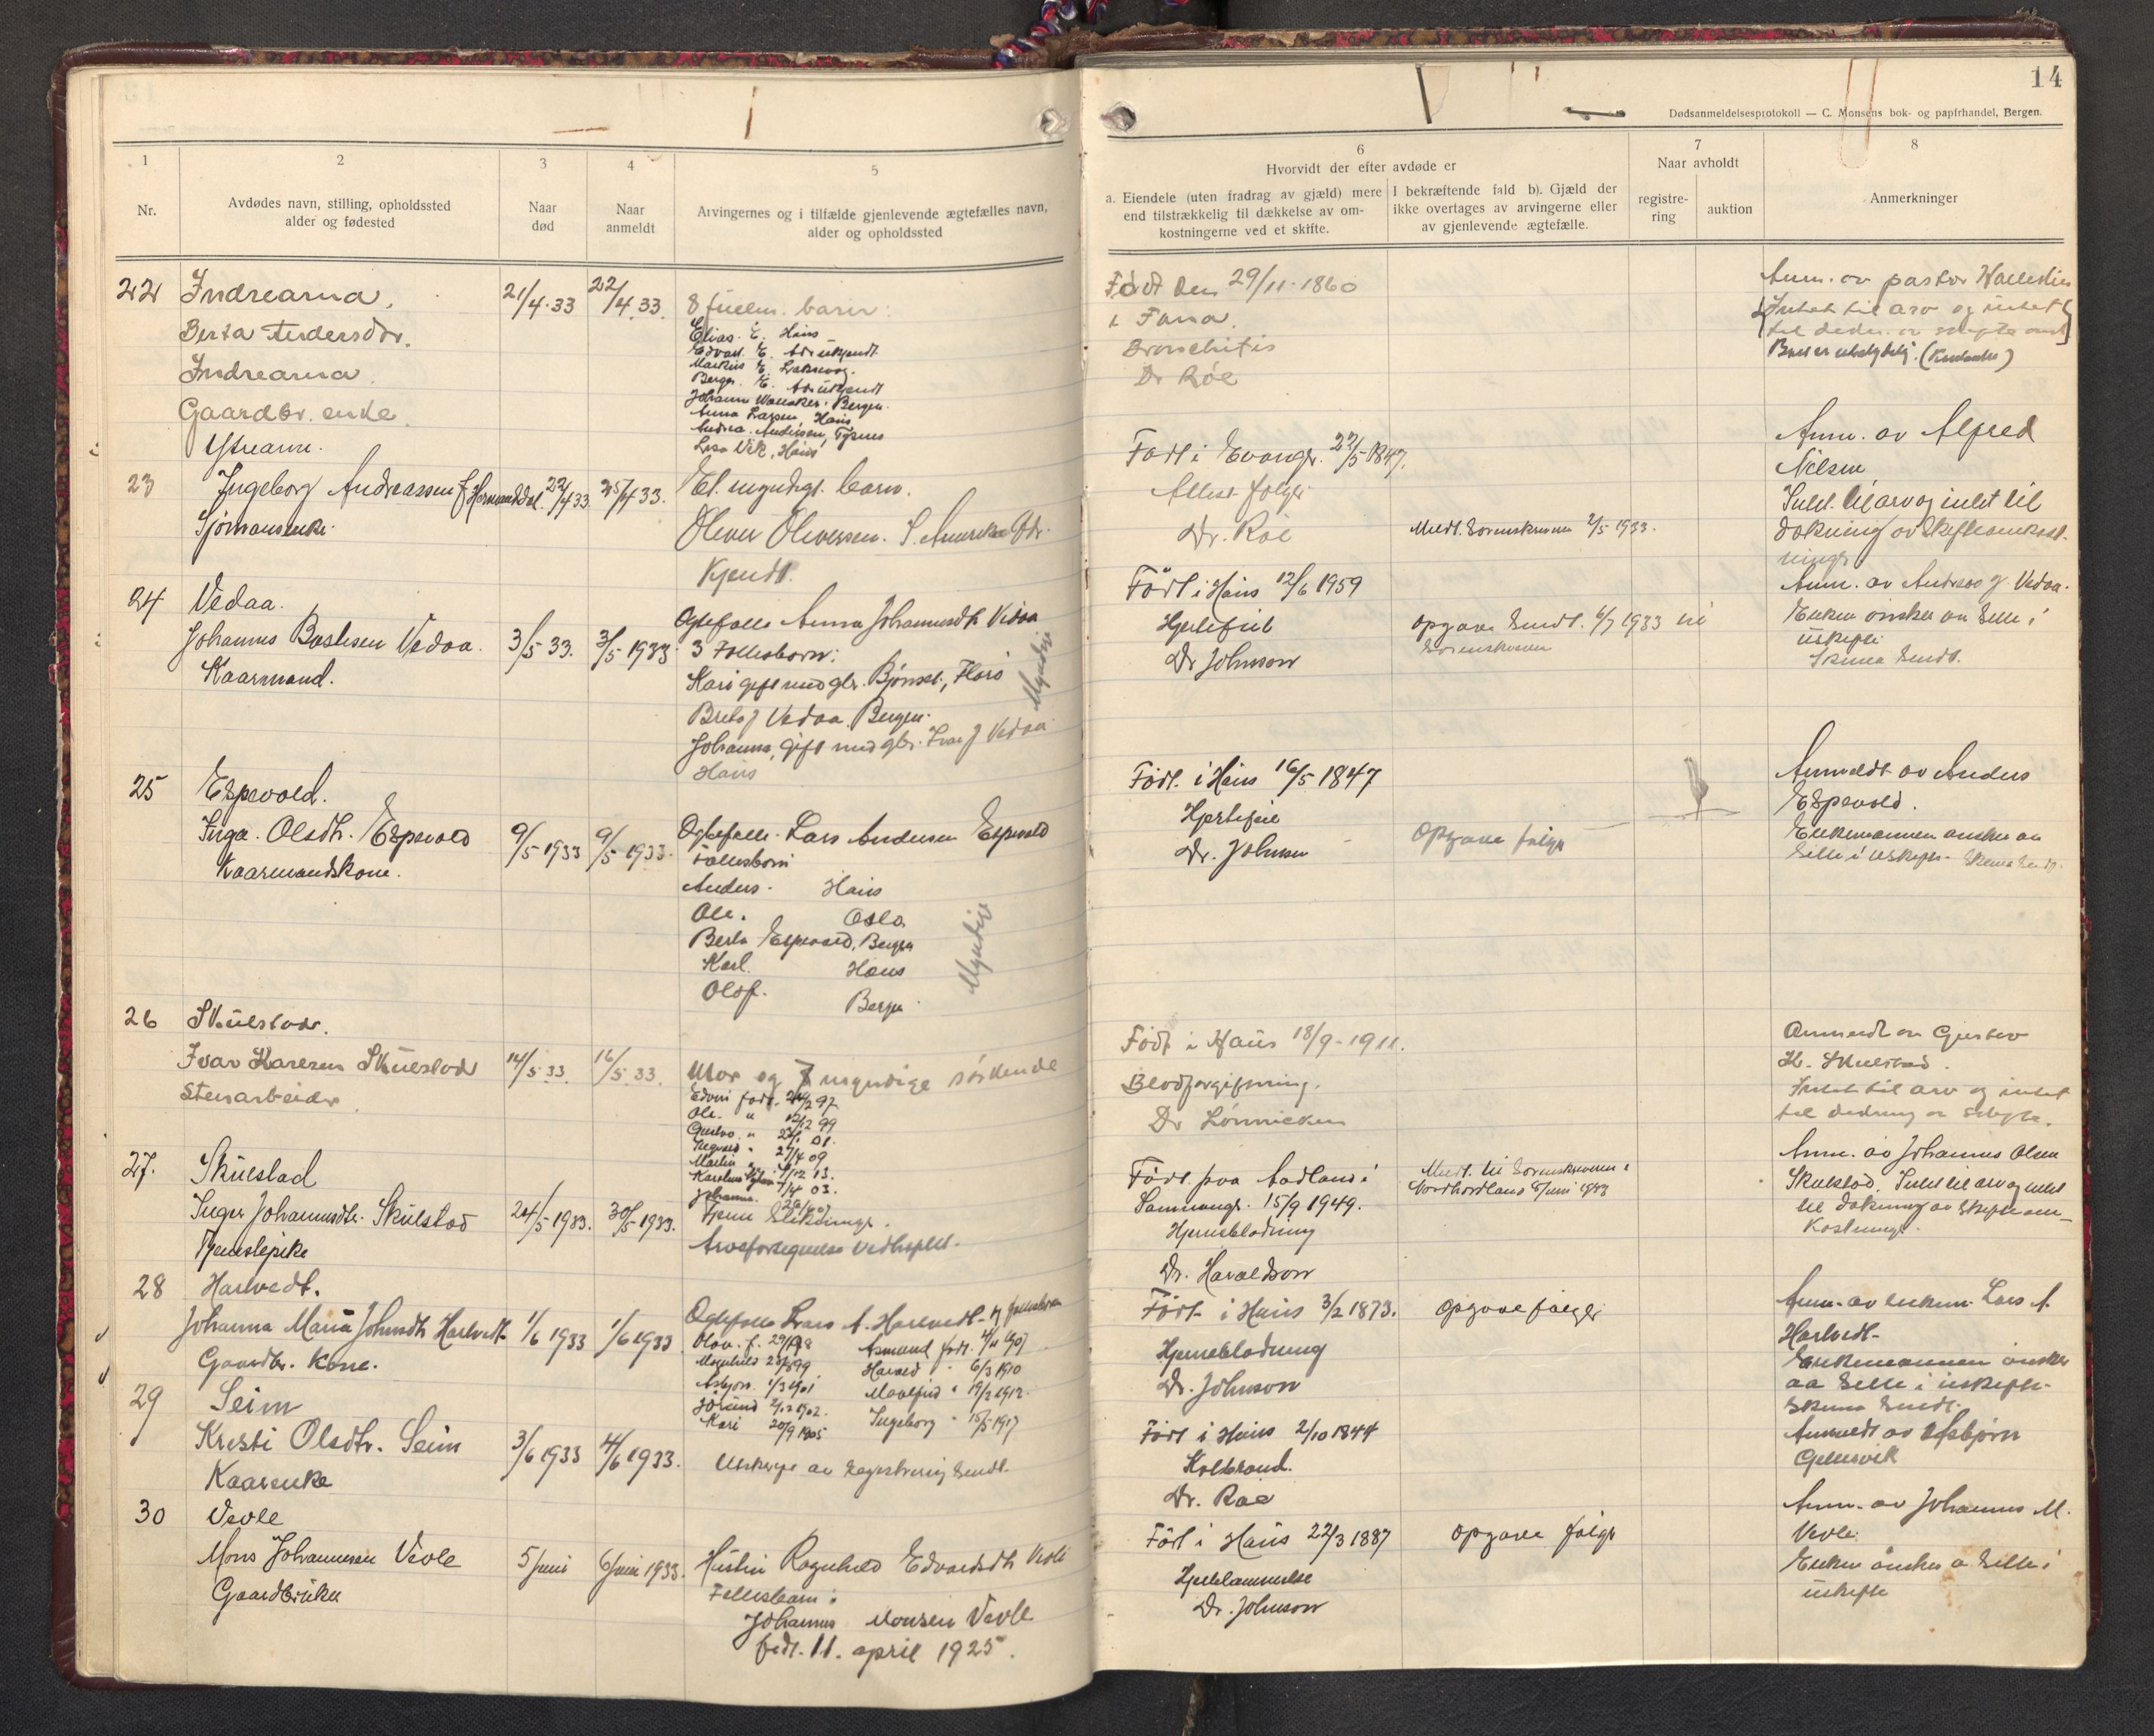 14
Dødsanmeldelsesprotokoll — C. Monsens bok- og papirhandel, Bergen.
1
Nr.
2
Avdødes navn, stilling, opholdssted
alder og fødested
3
Naar
død
4
Naar
anmeldt
5
Arvingernes og i tilfælde gjenlevende ægtefælles navn,
alder og opholdssted
6
Hvorvidt der efter avdøde er
a. Eiendele (uten fradrag av gjæld) mere
end tilstrækkelig til dækkelse av om-
kostningerne ved et skifte.
I bekræftende fald b). Gjæld der
ikke overtages av arvingerne eller
av gjenlevende ægtefælle.
7
Naar avholdt
registre-
ring
auktion
8
Anmerkninger
22
Indrearna,
Berta Andersdtr.
Indrearna
Gaardbr. enke
Ytrearne.
21/4.33
22/4.33.
8 barn:
Elias. E. Haus
Edvard. E. Adr ukjendt
Markus E.
Berge. E. Adr ukjendt
Johanne Bergen.
Anna Larsen Haus
Andrea Andersen,
Lisa Vik, Haus
Født den 29/11-1860
i Fana.
Bronchitis
Dr Roe
Anm. av pastor
Intet til arv og intet
til av
23
Ingeborg Andreassen f.
Sjømansenke.
22/4 33.
25/4 33.
Et. myndigt. barn.
Oliver Oliversen. S. Amerika Adr.
Kjendt.
Født i Evanger. 22/5 1847.
Attest følger
Dr. Roe
Medt. Sorenskriveren 2/5 1933.
Anm. av Alfred
Nilsen
Intet til arv og intet til
dækning av skifteomkost-
ninger
24
Vedaa.
Johannes Vedaa.
Kaarmand.
3/5 33.
3/5 1933.
Ægtefælle Anna Johannesdtr Vedaa
3 Fællesbarn:
Kari gift med gbr. Haus
Brita J Vedaa. Bergen.
Johanna, gift med gbr. Ivar J Vedaa
Haus
Myndige
Født i Haus 12/6 1959
Hjertefeil
Dr Johnson
Opgave sendt. 6/7 1933 til
Sorenskriveren
Anm. av Andreas J. Vedaa.
Enken ønsker aa sitte i
uskifte.
Skema sendt.
25
Espevold.
Inga. Olsdtr. Espevold
Kaarmandskone.
9/5 1933
9/5 1933.
Ægtefælle. Lars Andersen Espevold
Fællesbarn
Anders. Haus
Ole. Oslo.
Berta Espevold, Bergen
Karl. Haus
Olaf. Bergen
Myndige
Født. i Haus 16/5 1847
Hjertefeil
Dr. Johnson
Opgave følger
Anmeldt av Anders
Espevold.
Enkemannen ønsker aa
sitte i uskifte. Skema sendt.
26
Skulstad.
Ivar Skulstad
Stenarbeider
14/5.33.
16/5.33.
Mor og 7 myndige søskende
Edvin født.
Ole. " 99
Gustav. " 01.
" 27/4 09
Martin " 13.
03.
Johanna.
Født i Haus 18/9-1911.
Blodforgiftning.
Dr Lønnicken
Anmeldt av Gustav
K. Skulstad.
Intet til arv og intet
til dækning av skifte.
27.
Skulstad
Inger Johannesdtr. Skulstad
Tjenestepike
24/5 1933.
30/5 1933.
Fjerne slektninger.
Arvefortegnelse vedheftet.
Født paa Aadland i
Samnanger. 15/9 1949.
Hjerneblødning
Dr. Haraldson
Medt. til Sorenskriveren i
Nordhordland 5/juni 1933
Anm. av Johannes Olsen
Skulstad. Intet til arv og intet
til dækning av skifteom-
kostninger.
28
Harlvedt.
Johanna Maria Johnsdtr Harlvedt
Gaardbr. Kone.
1/6 1933
1/6 1933
Ægtefælle Lars A. Harlvedt. fællesbarn
Olav. f.
Magnhild
Asbjørn. 1/3 1901
1902.
Kari 20/9 1905
Asmund født. 4/11 1907
6/3 1910
19/2 1912.
Ingeborg " 15/5 1917
Født i Haus 3/2 1873.
Hjerneblødning
Dr. Johnson
Opgave følger
Anm. av enkem. Lars A.
Harlvedt.
Enkemannen ønsker
aa sitte i uskifte.
Skema sendt.
29
Seim
Kristi Olsdtr. Seim
Kaarenke
3/6 1933
4/6 1933.
Utskrift av Registrering sendt.
Født i Haus 2/10 1844
Koldbrand.
Dr. Roe
Anmeldt av Asbjørn
Gjelsvik
30
Vevle
Mons Johannesen Vevle
Gaardbruker
5 juni
6 juni 1933.
Hustru Ragnhild Edvardsdtr Vevle
Fellesbarn:
Johannes Monsen Vevle
født. 11. april 1925.
Født i Haus 22/3 1887
Hjertelammelse
Dr. Johnson
Opgave følger
Anm. av Johannes M.
Vevle.
Enken ønsker a sitte i
uskifte